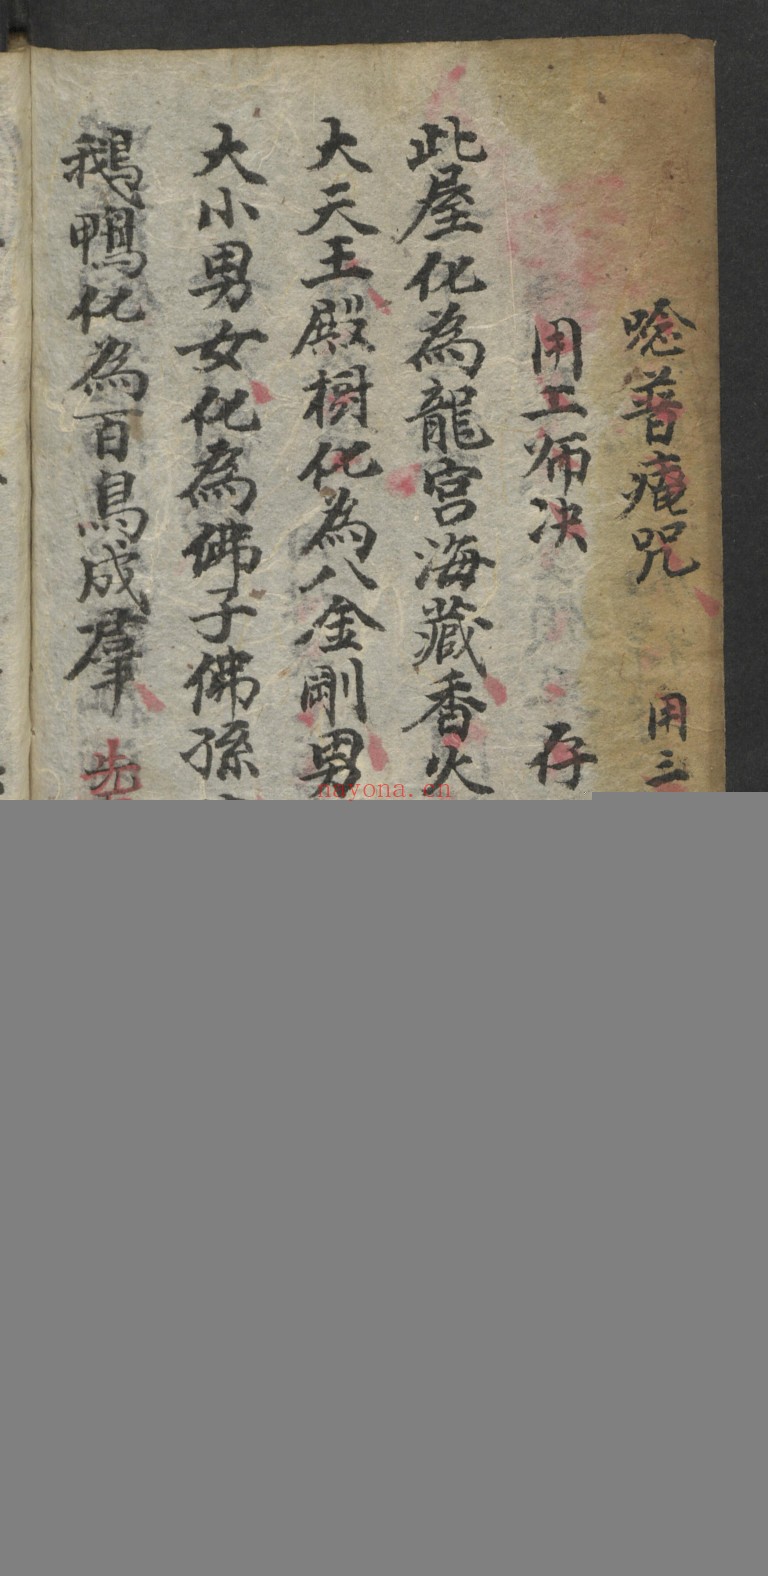 唸普庵咒　用三
用工师决　存
此屋化為龍宮海藏香火
大天王殿橱化為八金剛男
大小男女化為佛子佛孫
鵝鴨化為百鳥成羣　先
nayona.cn